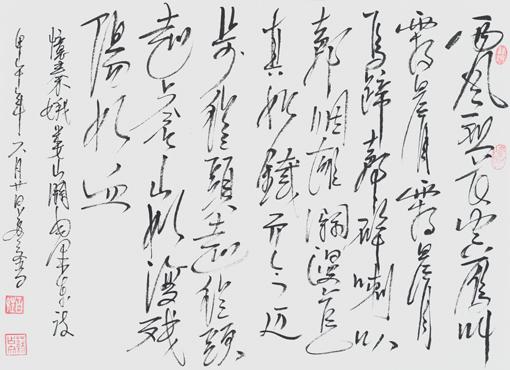 西风烈長空雁叫
霜晨月霜晨月
馬蹄聲碎喇叭
聲咽雄關漫道
真如鐵而今迈
步從頭越從頭
越苍山如海残
陽如血
憶秦娥娄山關
甲午年六月廿日